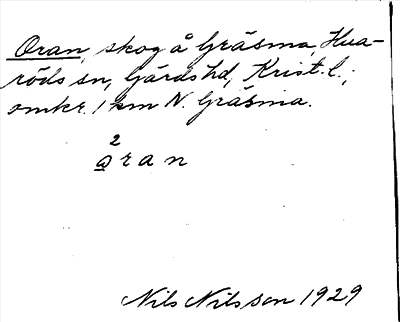 Oran, skog å Gräsma, Hua-
röds sn, Gärds hd, Krist. l.;
omkr. 1 km N. Gräsma.
2
a r a n
Nils Nilsson 1929